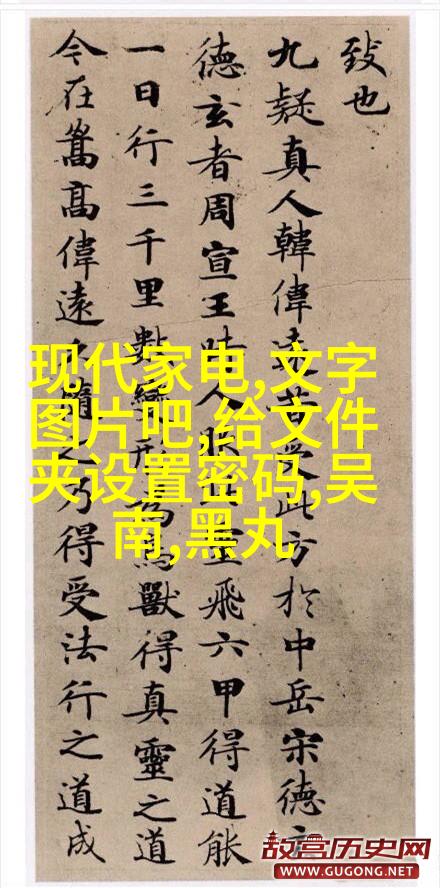 致也
九疑真人韓偉遠昔受此方於中岳宋德玄
德玄者周宣王時人服此靈飛六甲得道能
一日行三千里數變形為鳥獸得真靈之道
今在嵩高偉遠久隨之乃得受法行之道成
现代家电,文字
图片吧,给文件
夹设置密码,吴
南,黑丸
故宫历史网
WWW.GUGONG.NET